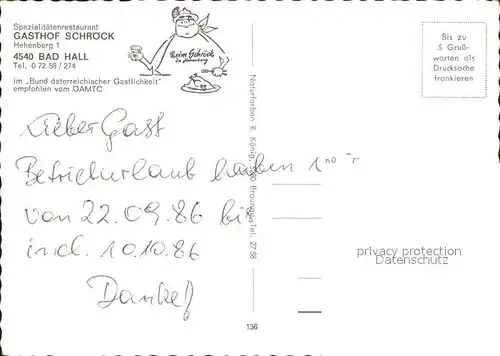 Spezialitätenrestaurant
GASTHOF SCHRÖCK
Hehenberg 1
4540 BAD HALL
Tel. 0 72 58 / 274
im „Bund österreichischer Gastlichkeit"
empfohlen vom ÖAMTC
Beim Schröck
Bis zu
5 Gruß-
worten als
Drucksache
frankieren
Lieber Gast
Betriebsurlaub haben
von 22.09.86 bis
incl. 10.10.86
Danke!
Naturfarben R. König, Tel. 27 58
136
privacy protection
Datenschutz